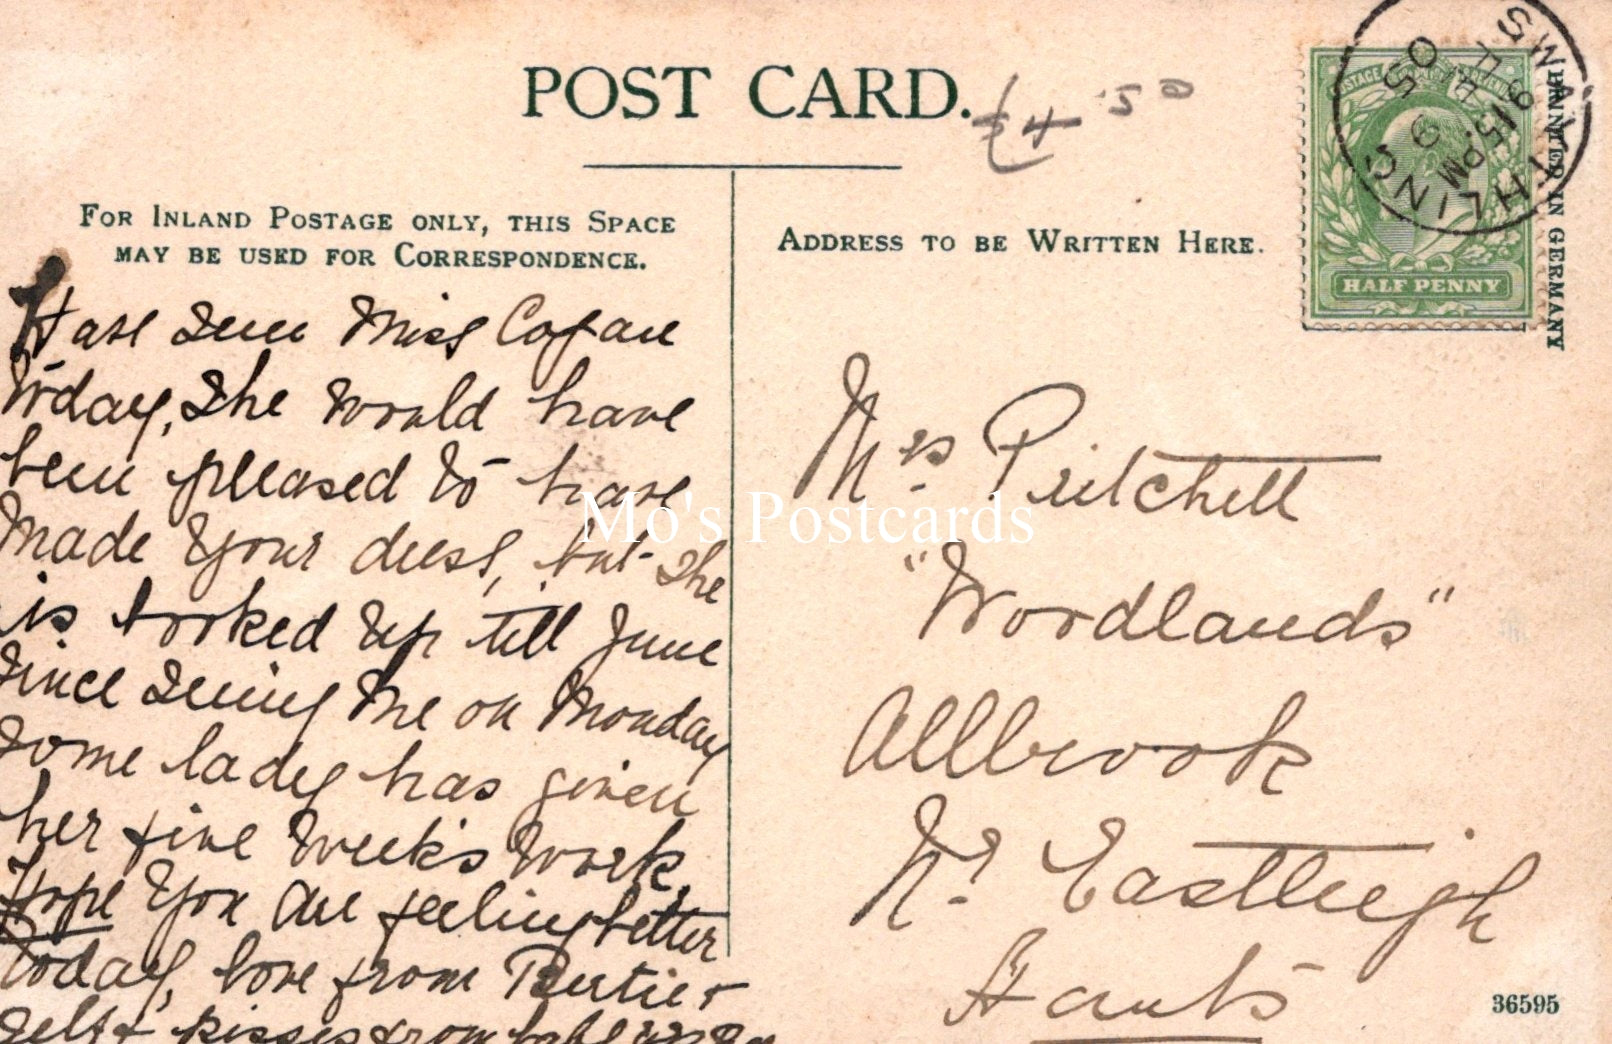 POST CARD.
£4.50
FOR INLAND POSTAGE ONLY, THIS SPACE
MAY BE USED FOR CORRESPONDENCE.
Have seen Miss Cogan
today, she would have
been pleased to have
made your dress, but she
is booked up till June
since seeing me on Monday
some lady has given
her five week's work,
Hope you are feeling better
today, love from Bertie +
self + kisses from
ADDRESS TO BE WRITTEN HERE.
HALF PENNY
PRINTED IN GERMANY
WORTHING
9 15 PM
9
05
Mrs. Pritchett
"Woodlands"
Allbrook
Nr. Eastleigh
Hants
36595
Mo's Postcards